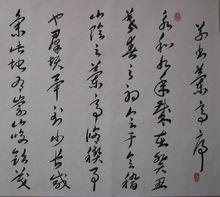 草書蘭亭序
永和九年歲在癸丑
暮春之初會于會稽
山陰之蘭亭脩禊事
也群賢畢至少長咸
集此地有崇山峻領茂